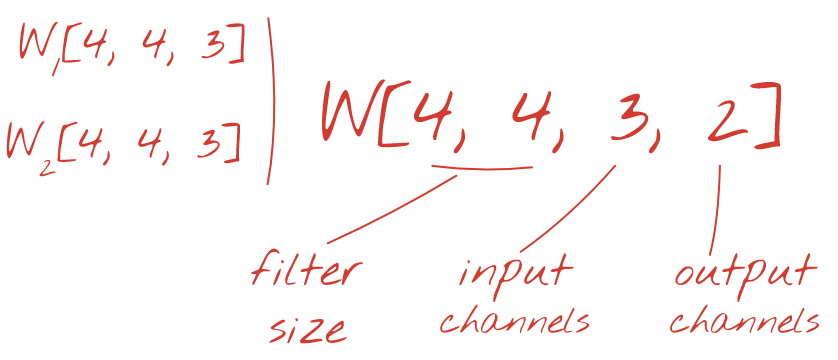 W₁[4, 4, 3]
W₂[4, 4, 3]
W[4, 4, 3, 2]
filter
size
input
channels
output
channels